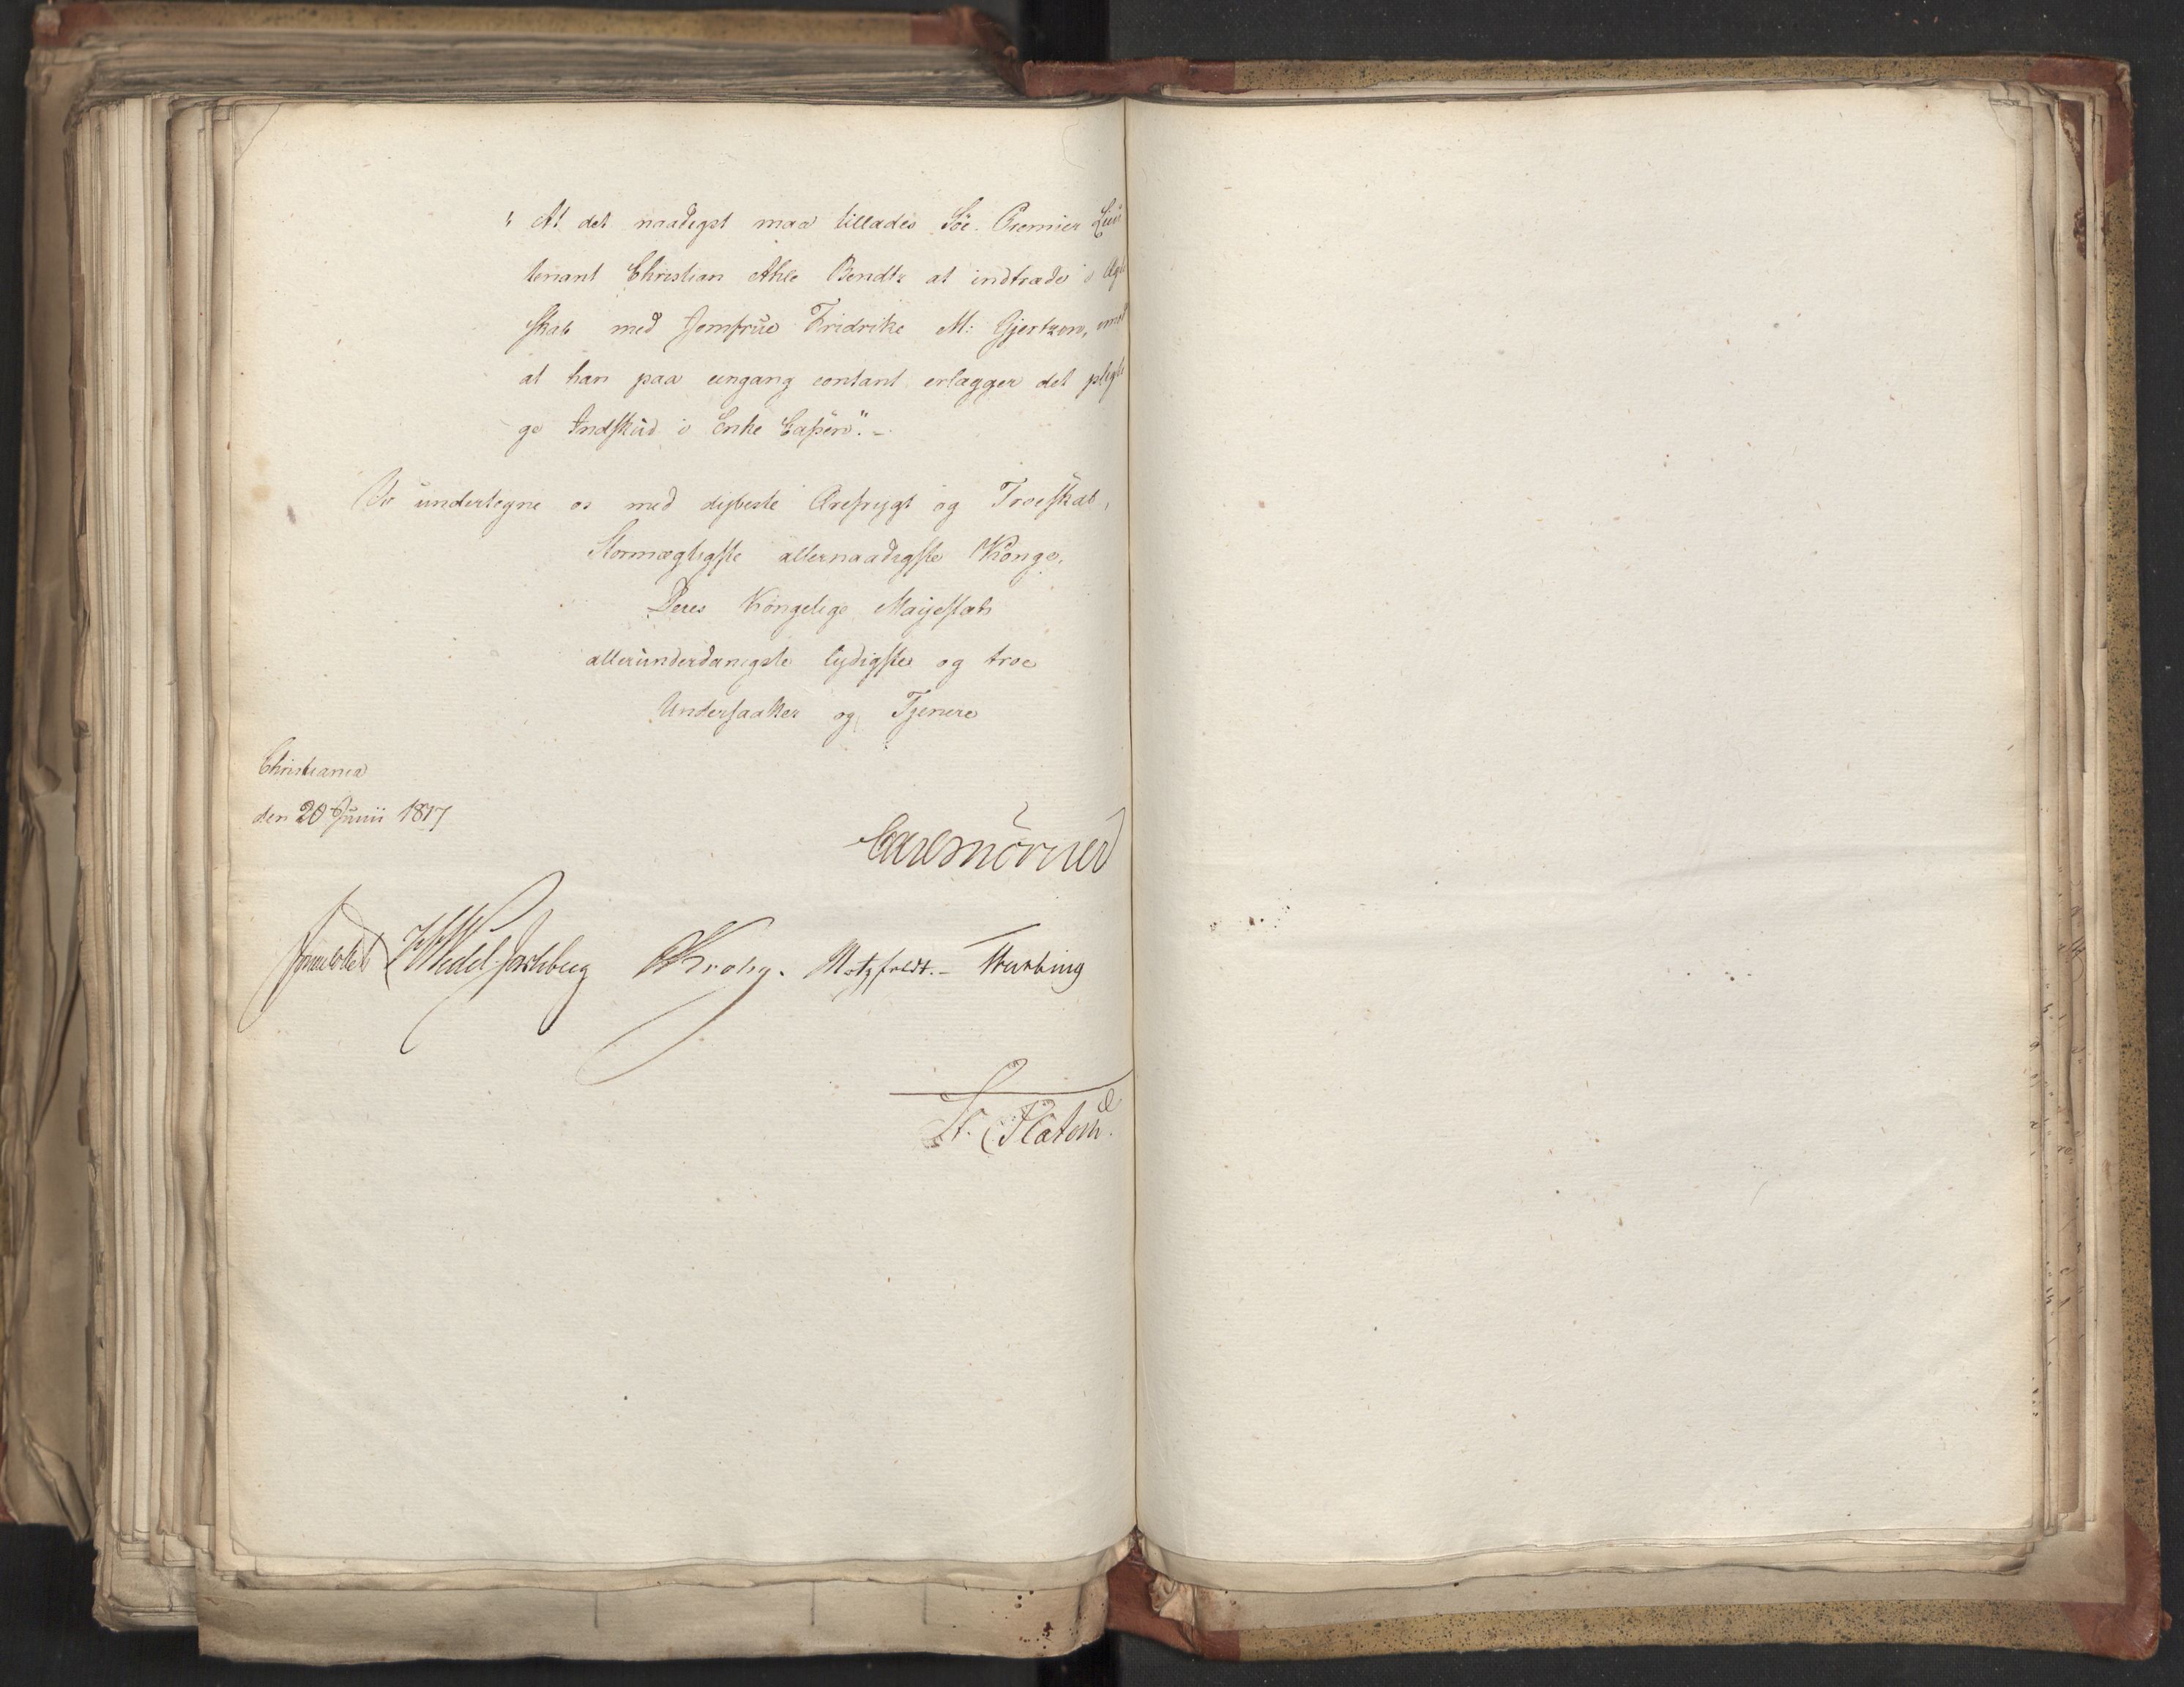 "At det naadigst maa tillades Söe-Premier Lieu
tenant Christian Ahle Bendtz at indtræde i Ægte
skab med Jomfrue Fridrike M: Gjertzen, imod
at han paa eengang contant erlægger det pligti
ge Indskud i Enke Cassen".-
Vi undertegne os med dybeste Ærefrygt og Troeskab,
Stormægtigste allernaadigste Konge,
Deres Kongelige Mayestæts
allerunderdanigste lydigste og troe
Undersaatter og Tjenere
Christiania
den 20 Junii 1817
Carl Mörner
Sommerhielm HWedel Jarlsberg CKrohg. Motzfeldt.- Threschow
Fasting
L. Platou